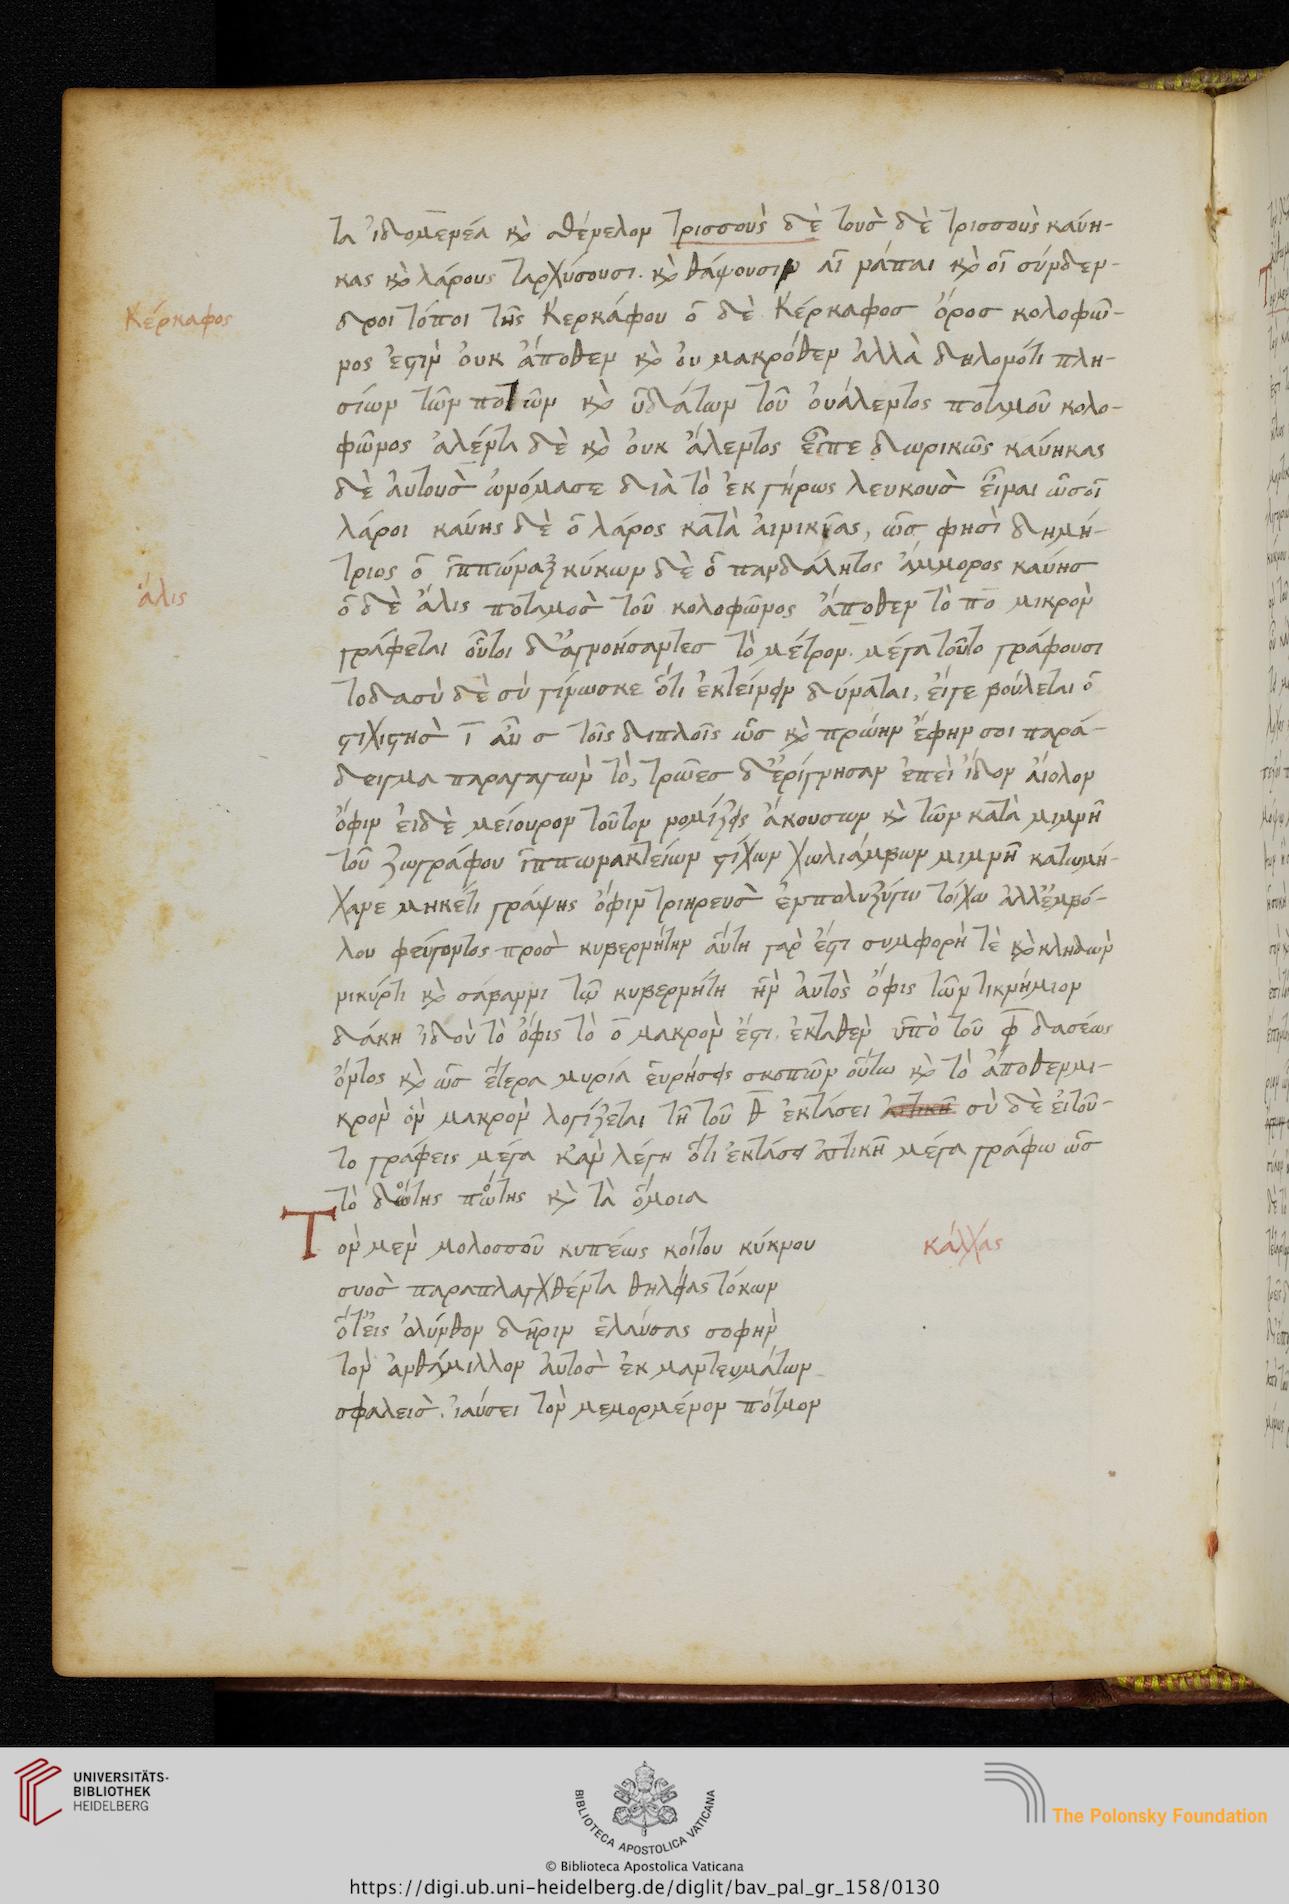 τα ἰδομενέα κ̀ σθένελον τρισσοὺς δὲ τοὺσ δὲ τρισσοὺς καύη-
κας κ̀ λάρους ταρχύσουσι. κ̀ θάψουσιν αἵ νάπαι κ̀ οἵ σύνδεν-
Κέρκαφος
δροι τόποι τῆς Κερκάφου ὅ δὲ Κέρκαφοσ ὄροσ κολοφῶ-
νος ἐστὶν ὀυκ ἄποθεν κ̀ ὀυ μακρόθεν ἀλλὰ δηλονότι πλη-
σίων τῶν ποτῶν κ̀ ὑδάτων τοῦ ὀυάλεντος ποταμοῦ κολο-
φῶνος ἀλέντα δὲ κ̀ ὀυκ ἄλεντος εἶπε δωρικῶς καύηκας
δὲ ἀυτοὺσ ὠνόμασε διὰ τὸ ἐκ γήρως λευκοὺσ εἶναι ὡσοἵ
λάροι καύης δὲ ὅ λάρος κατὰ ἀινικῆας, ὥσ φησὶ δημή-
τριος ὅ ἱππώναξ κύκων δὲ ὅ πανδάλητος ἄμμορος καύησ
ἄλις
ὅ δὲ ἄλις ποταμοσ τοῦ κολοφῶνος ἄποθεν τὸ πο μικρὸν
γράφεται οὗτοι δ'ἀγνοήσαντεσ τὸ μέτρον. μέγα τοῦτο γράφουσι
τοδασὺ δὲ σὺ γίνωσκε ὅτι ἐκτείνειν δύναται, ἐίγε βούλεται ὅ
στιχιστὴσ ϊ ἂν σ τοῖς διπλοῖς ὥσ κ̀ πρώην ἔφην σοι παρά-
δειγμα παραγαγὼν τὸ, τρῶεσ δ'ἐρίγνησαν ἐπεὶ ἴδον ἀίολον
ὄφιν ἐιδὲ μείουρον τοῦτον νομίζεις ἄκουσων κ̀ τῶν κατὰ μιμνῆ
τοῦ ζωγράφου ἱππωνακτείων στίχων χωλιάμβων μιμνῆ κατωμή-
χανε μηκέτι γράψης ὄφιν τριηρευσ ἐνπολυζύγω τοίχω ἀλλ'ἐμβό-
λου φεύγοντος προσ κυβερνήτην ἅυτη γαρ ἔστι συμφορή τὲ κ̀ κληδὼν
νικύρτι κ̀ σάβαννι τῶ κυβερνήτη ἢν ἀυτὸς ὄφις τῶν τικνήμιον
δάκη ἰδοὺ τὸ ὄφις τὸ ο μακρὸν ἔστι. ἐκταθεν ὑπὸ τοῦ φ δασέως
ὄντος κ̀ ὥσ ἕτερα μυρία ἑυρήσεις σκοπῶν οὕτω κ̀ τὸ ἄποθενμι-
κρὸν ὂν μακρὸν λογίζεται τῆ τοῦ θ ἐκτάσει ἀττικῆ σὺ δὲ ἐιτοῦ-
το γράφεις μέγα κἂν λέγη ὅτι ἐκτάσει ἀττικῆ μέγα γράφω ὥσ
τὸ δώτης πώτης κ̀ τὰ ὅμοια
Τὸν μὲν μολοσσοῦ κυπέως κοίτου κύκνου
κάλχας
συοσ παραπλαγχθέντα θηλείας τόκων
ὅτ'ἐις ὀλύνθον δῆριν ἑλκύσας σοφὴν
τὸν ἀνθάμιλλον ἀυτὸσ ἐκ μαντευμάτων
σφαλεὶσ. ἰαύσει τὸν μεμορμένον πότμον
UNIVERSITÄTS-
BIBLIOTHEK
HEIDELBERG
BIBLIOTECA APOSTOLICA VATICANA
The Polonsky Foundation
© Biblioteca Apostolica Vaticana
https://digi.ub.uni-heidelberg.de/diglit/bav_pal_gr_158/0130